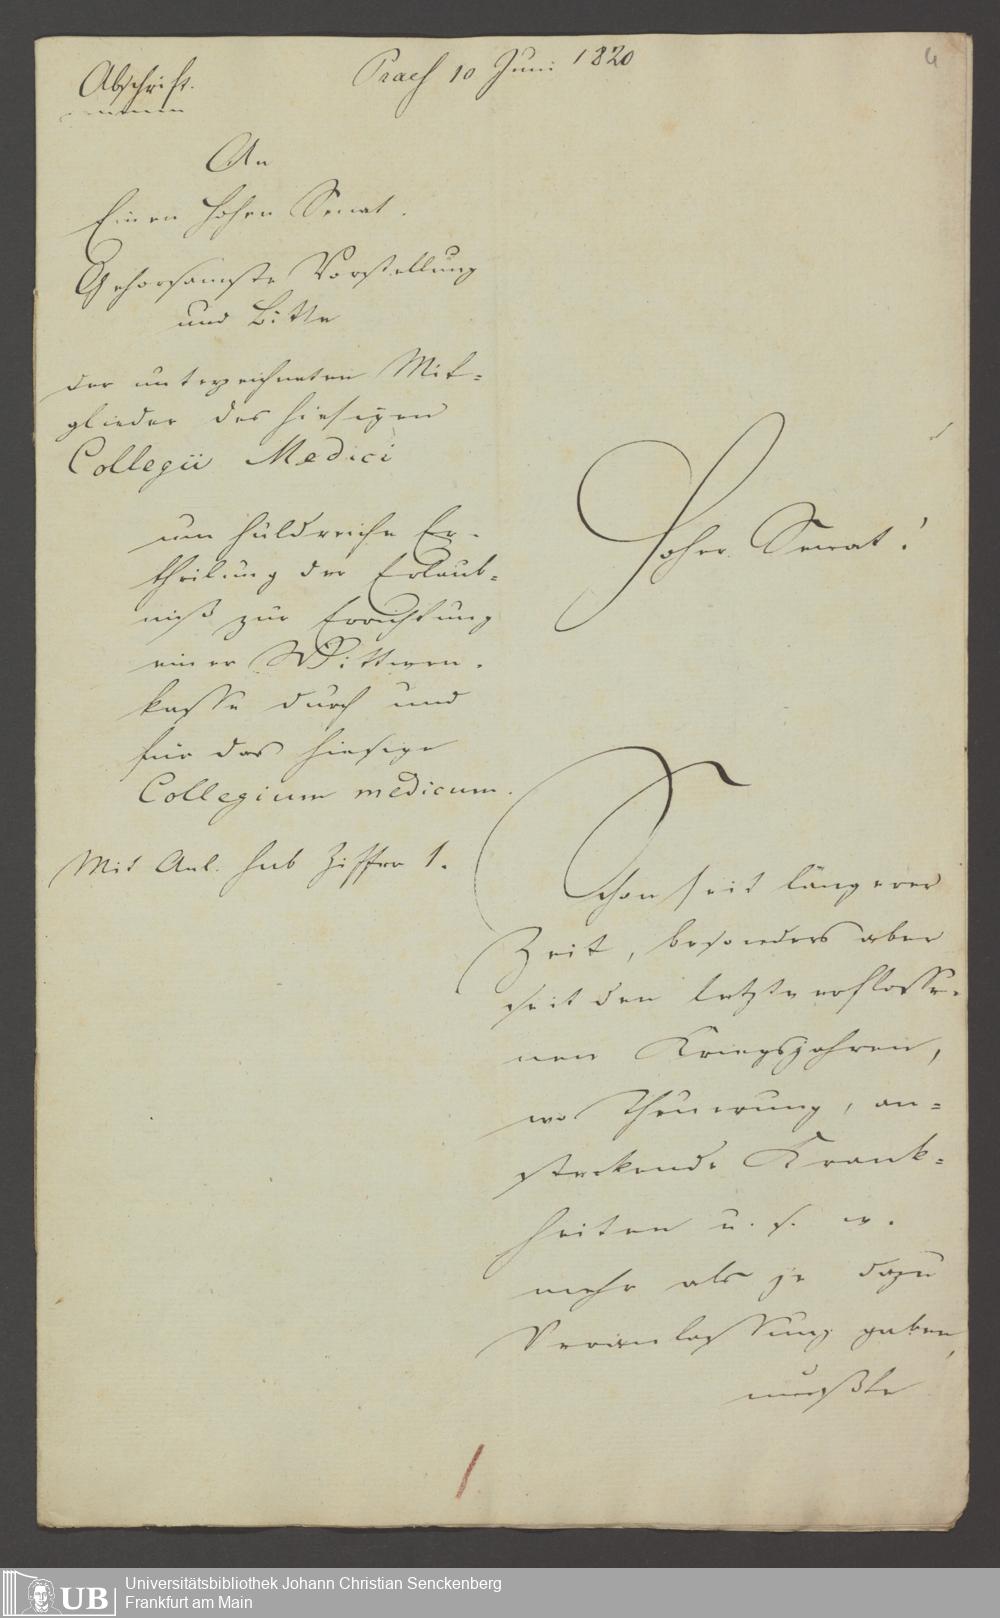 Abschrift.
Praes 10 Juni 1820
4
An
Einen hohen Senat.
Gehorsamste Vorstellung
und Bitte
der unterzeichneten Mit-
glieder des hiesigen
Collegii Medici
um huldreiche Er-
theilung der Erlaub-
niß zur Errichtung
einer Wittwen-
kasse durch und
für das hiesige
Collegium medicum.
Mit Anl. sub Ziffer 1.
Hoher Senat!
Schon seit längerer
Zeit, besonders aber
seit den letztverflosse-
nen Kriegsjahren,
wo Theuerung, an-
steckende Krank-
heiten u. s. w.
mehr als je dazu
Veranlassung gaben,
mußte
UB
Universitätsbibliothek Johann Christian Senckenberg
Frankfurt am Main